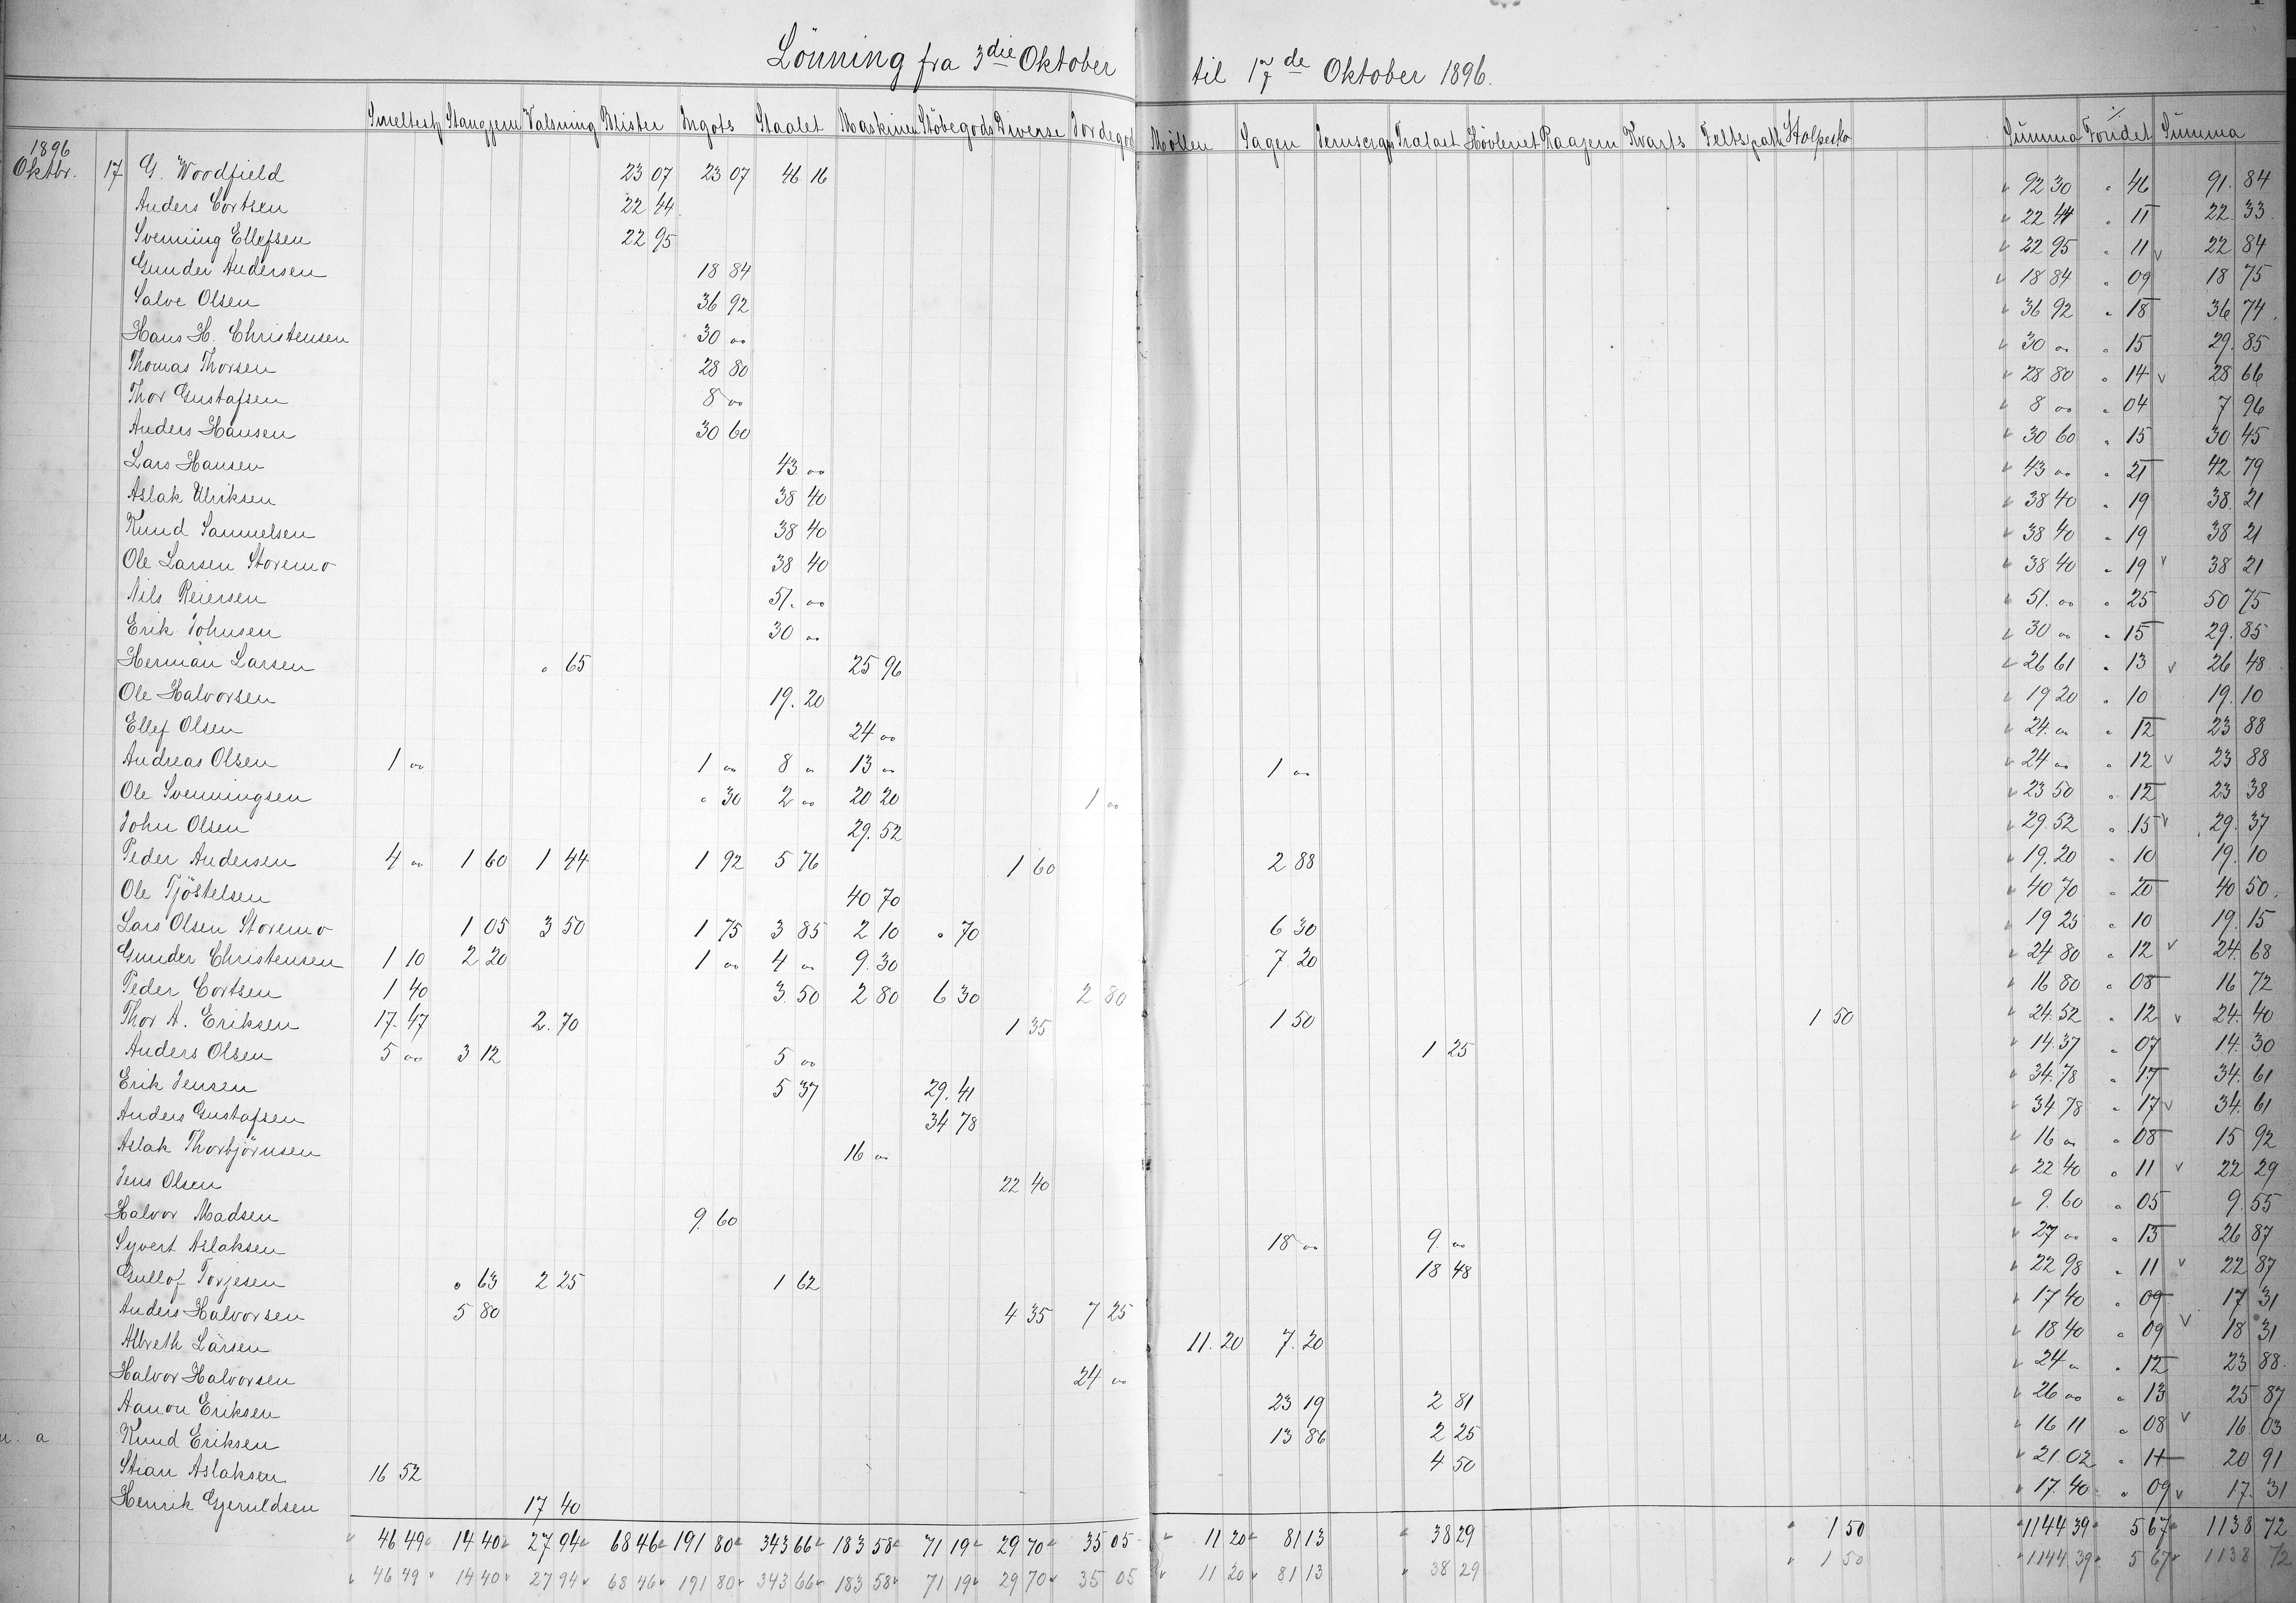 Lönning fra 3die Oktober til 17de Oktober 1896.
Stangjern Valsning Blister Ingots Staalet Maskinen Stöbegods Diverse Jordegods Möllen Sagen Tralast Hövleriet Raajern Kvarts Feltspath Summa ٪ Fondet Summa
1896
Oktbr. 17 G. Woodfield 23 07 23 07 46 16 92 30 " 46 91. 84
Anders Cortsen 22 44 22 44 " 11 22. 33
Svenning Ellefsen 22 95 22 95 " 11 22 84
Gunder Andersen 18 84 18 84 " 09 18 75
Salve Olsen 36 92 36 92 " 18 36 74
Hans H. Christensen 30 00 30 00 " 15 29. 85
Thomas Thorsen 28 80 28 80 " 14 28 66
Thor Gustafsen 8 00 8 00 " 04 7 96
Anders Hansen 30 60 30 60 " 15 30 45
Lars Hansen 43 00 43 00 " 21 42 79
Aslak Ulriksen 38 40 38 40 " 19 38. 21
Knud Samuelsen 38 40 38 40 " 19 38 21
Ole Larsen Storemo 38 40 38 40 " 19 38 21
Nils Reiersen 51. 00 51. 00 " 25 50 75
Erik Johnsen 30 00 30 00 " 15 29. 85
Herman Larsen " 65 25 96 26 61 " 13 26 48
Ole Halvorsen 19. 20 19 20 " 10 19. 10
Ellef Olsen 24 00 24. 00 " 12 23 88
Andreas Olsen 1 00 1 00 8 00 13 00 1 00 24 00 " 12 23 88
Ole Svenningsen " 30 2 00 20 20 1 00 23 50 " 12 23 38
John Olsen 29. 52 29. 52 " 15 29. 37
Peder Andersen 4 00 1 60 1 44 1 92 5 76 1 60 2 88 19. 20 " 10 19. 10
Ole Tjöstelsen 40 70 40 70 " 20 40 50
Lars Olsen Storemo 1 05 3 50 1 75 3 85 2 10 " 70 6 30 19 25 " 10 19. 15
Gunder Christensen 1 10 2 20 1 00 4 00 9. 30 7 20 24 80 " 12 24. 68
Peder Cortsen 1 40 3. 50 2 80 6 30 2 80 16 80 " 08 16 72
Thor A. Eriksen 17. 47 2. 70 1 35 1 50 1 50 24. 52 " 12 24. 40
Anders Olsen 5 00 3 12 5 00 1 25 14. 37 " 07 14. 30
Erik Jensen 5 37 29. 41 34. 78 " 17 34. 61
Anders Gustafsen 34 78 34 78 " 17 34. 61
Aslak Thorbjörnsen 16 00 16 00 " 08 15 92
Jens Olsen 22 40 22 40 " 11 22 29
Halvor Madsen 9. 60 9. 60 " 05 9. 55
Syvert Aslaksen 18 00 9. 00 27 00 " 13 26 87
Gullof Torjesen " 63 2 25 1 62 18 48 22 98 " 11 22 87
Anders Halvorsen 5 80 4 35 7 25 17 40 " 09 17 31
Albreth Larsen 11. 20 7. 20 18 40 " 09 18 31
Halvor Halvorsen 24 00 24 00 " 12 23 88
Aanon Eriksen 23 19 2 81 26 00 " 13 25 87
a Knud Eriksen 13 86 2 25 16 11 " 08 16 03
Stian Aslaksen 16 52 4 50 21. 02 " 11 20 91
Henrik Gjeruldsen 17 40 17. 40 " 09 17. 31
46 49 14 40 27 94 68 46 191 80 343 66 183 58 71 19 29 70 35 05 11 20 81 13 38 29 1 50 1144 39 5 67 1138 72
46 49 14 40 27 94 68 46 191 80 343 66 183 58 71 19 29 70 35 05 11 20 81 13 38 29 1 50 1144 39 5 67 1138 72